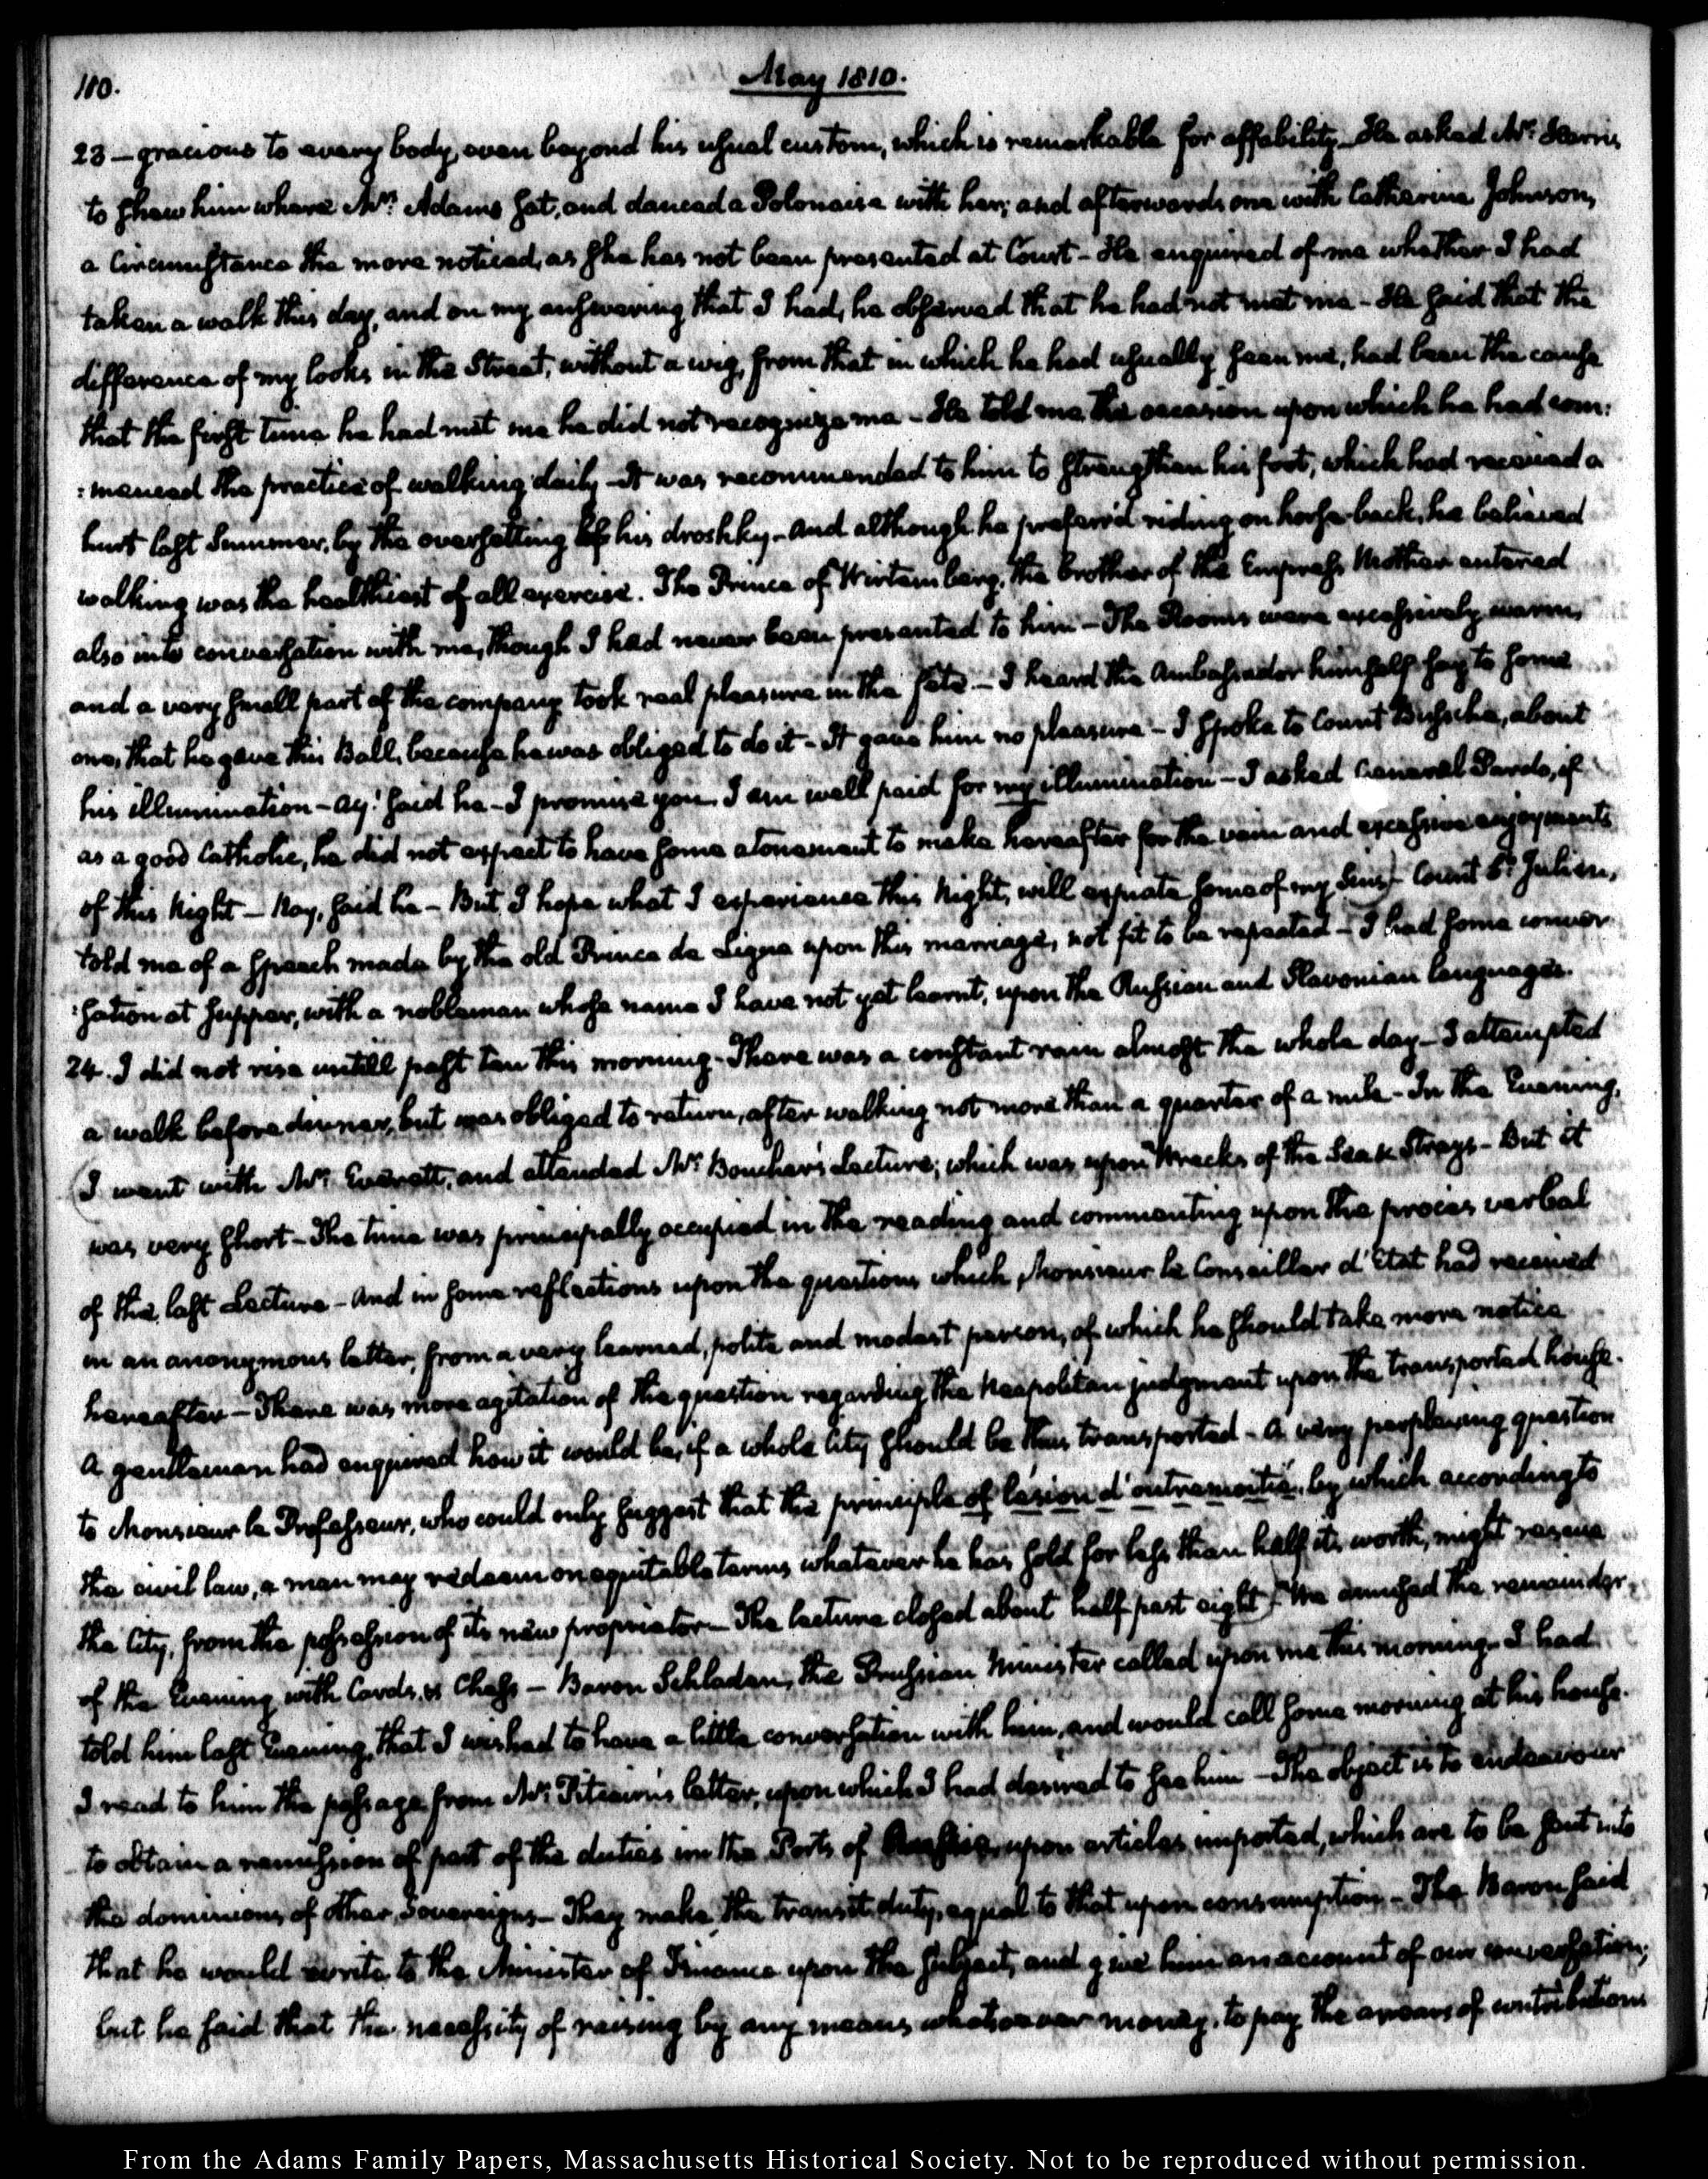 110.
May 1810.
23 — gracious to every body, even beyond his usual custom, which is remarkable for affability. He asked Mr. Harris
to shew him where Mrs. Adams sat, and danced a Polonaise with her; and afterwards one with Catherine Johnson,
a Circumstance the more noticed, as she has not been presented at Court — He enquired of me whether I had
taken a walk this day, and on my answering that I had, he observed that he had not met me — He said that the
difference of my looks in the Street, without a wig, from that in which he had usually seen me, had been the cause
that the first time he had met me he did not recognize me — He told me the occasion upon which he had com:
:menced the practice of walking daily — It was recommended to him to strengthen his foot, which had received a
hurt last Summer, by the oversetting of his droshky — And although he preferr'd riding on horse-back, he believed
walking was the healthiest of all exercise. The Prince of Wirtemberg, the brother of the Empress Mother entered
also into conversation with me, though I had never been presented to him — The Rooms were excessively warm,
and a very small part of the company took real pleasure in the fete — I heard the Ambassador himself say to some
one, that he gave this Ball, because he was obliged to do it — It gave him no pleasure — I spoke to Count Bussche, about
his illumination — Ay! said he — I promise you, I am well paid for my illumination — I asked General Pardo, if
as a good Catholic, he did not expect to have some atonement to make hereafter for the vain and excessive enjoyments
of this Night — Nay, said he — But I hope what I experience this Night, will expiate some of my Sins — Count St. Julien,
told me of a Speech made by the old Prince de Ligne upon this marriage, not fit to be repeated — I had some conver
:sation at supper, with a nobleman whose name I have not yet learnt, upon the Russian and Slavonian languages.
24. I did not rise untill past ten this morning. There was a constant rain almost the whole day — I attempted
a walk before dinner, but was obliged to return, after walking not more than a quarter of a mile — In the Evening,
(I went with Mr. Everett, and attended Mr. Boucher's Lecture; which was upon Wrecks of the Sea & Strays — But it
was very short — The time was principally occupied in the reading and commenting upon the procès verbal
of the last Lecture — And in some reflections upon the questions which Monsieur le Conseiller d'Etat had received
in an anonymous letter, from a very learned, polite and modest person, of which he should take more notice
hereafter — There was more agitation of the question regarding the Neapolitan judgment upon the transported house.
A gentleman had enquired how it would be, if a whole City should be thus transported — A very perplexing question
to Monsieur le Professeur, who could only suggest that the principle of lesion d'outremoitié, by which according to
the civil law, a man may redeem on equitable terms whatever he has sold for less than half its worth, might rescue
the City, from the possession of its new proprietor — The lecture closed about half past eight) We amused the remainder
of the Evening with Cards, & Chess — Baron Schladen, the Prussian Minister called upon me this morning — I had
told him last Evening, that I wished to have a little conversation with him, and would call some morning at his house.
I read to him the passage from Mr. Pitcairn's letter, upon which I had desired to see him — The object is to endeavour
to obtain a remission of part of the duties in the Ports of upon articles imported, which are to be sent into
the dominions of other Sovereigns — They make the transit duty, equal to that upon consumption — The Baron said
that he would write to the Minister of Finance upon the subject, and give him an account of our conversation;
but he said that the necessity of raising by any means whatsoever money, to pay the arrears of contributions
From the Adams Family Papers, Massachusetts Historical Society. Not to be reproduced without permission.